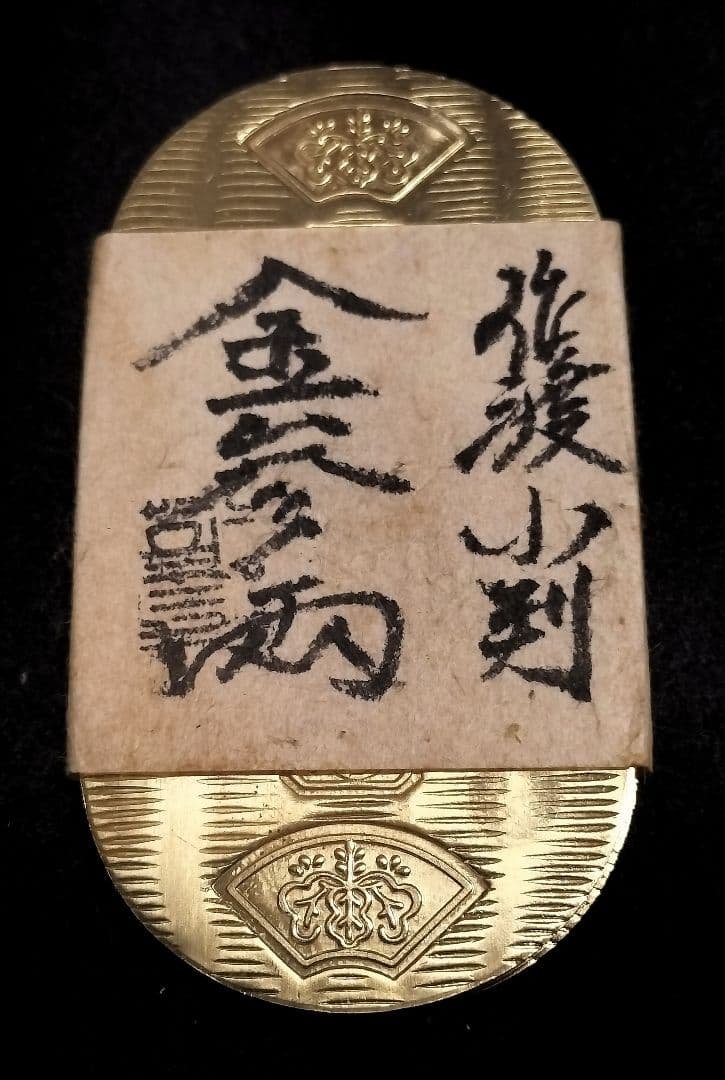 佐渡小判
金参両